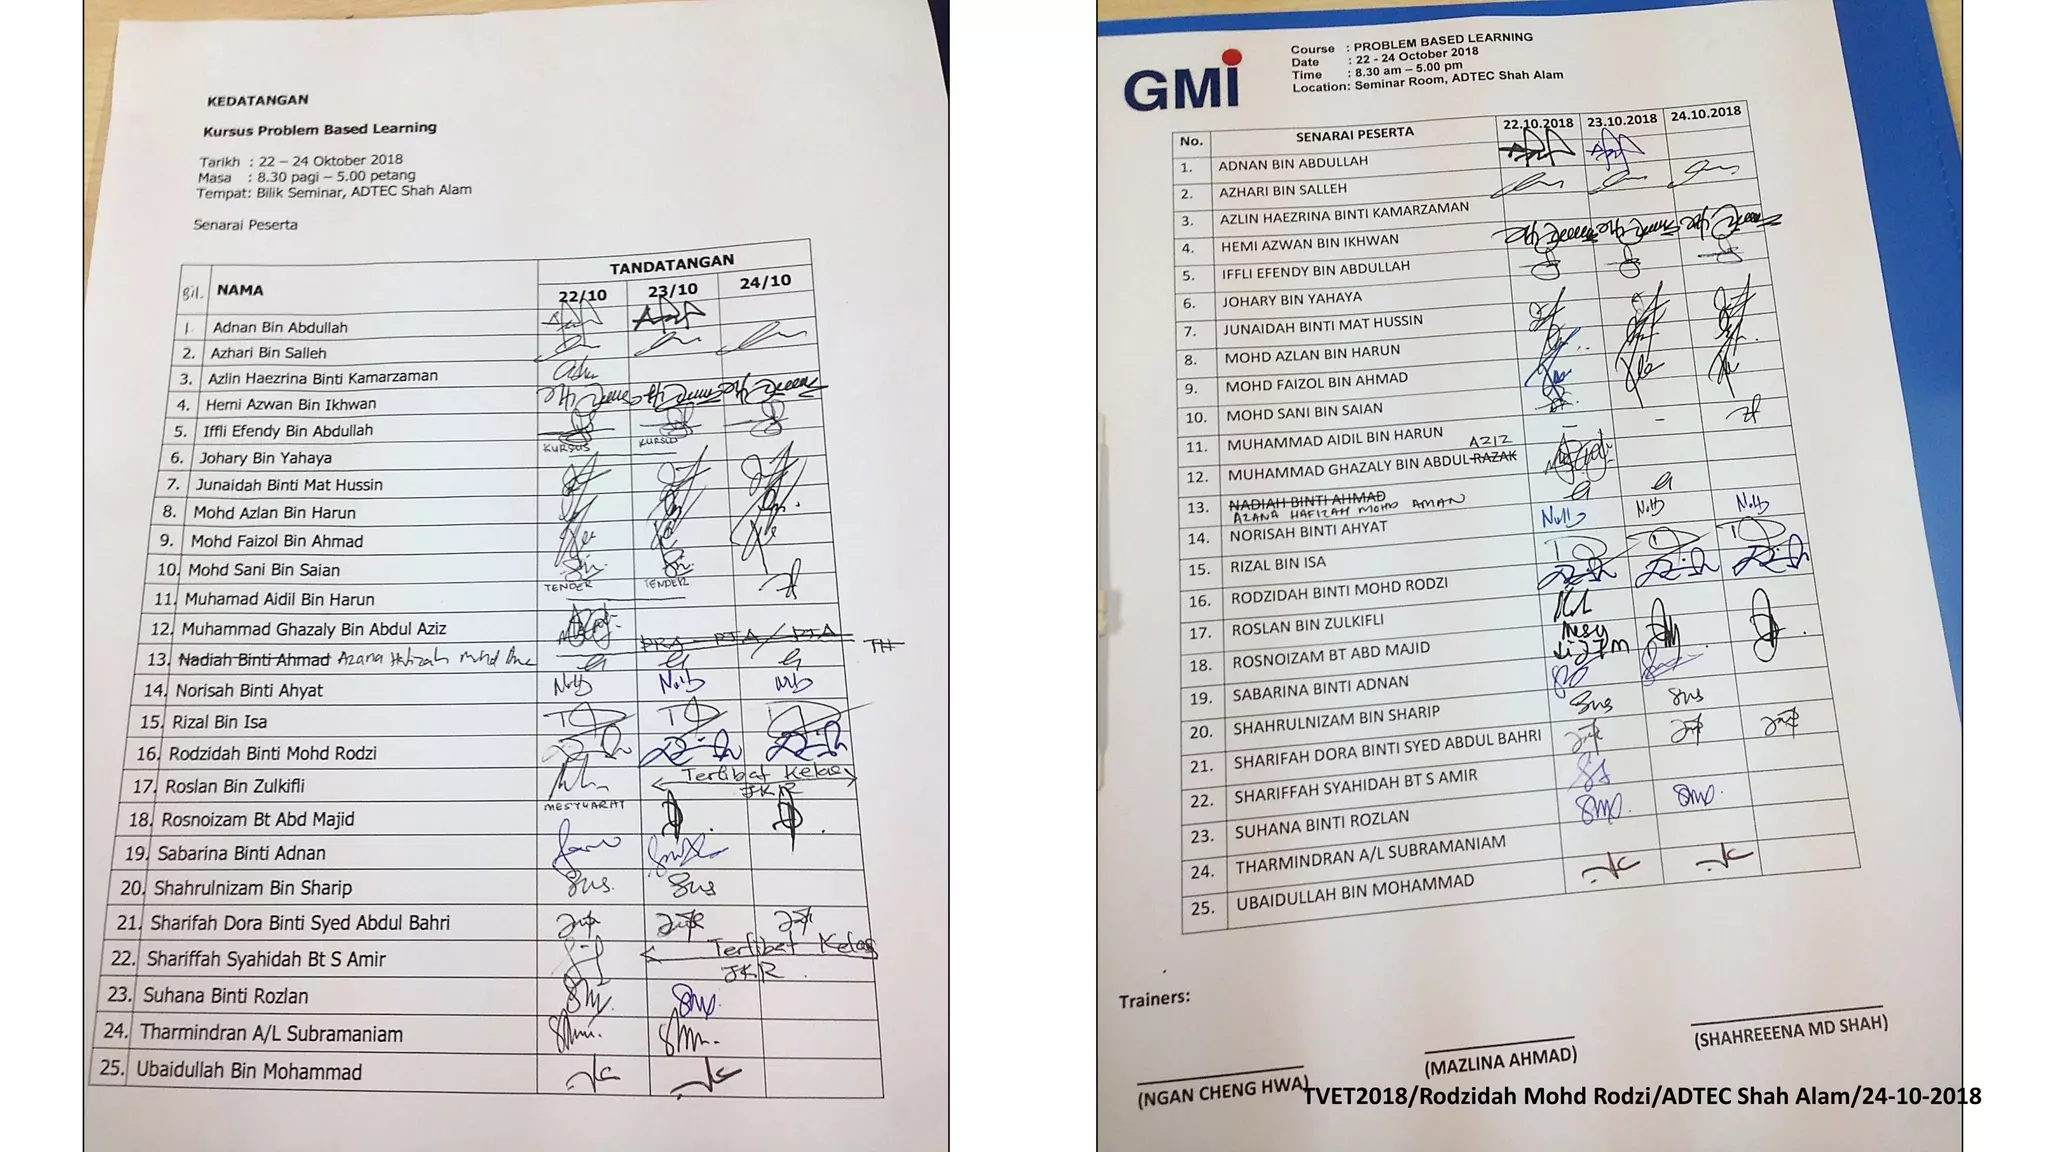 KEDATANGAN
Kursus Problem Based Learning
Tarikh : 22 – 24 Oktober 2018
Masa : 8.30 pagi – 5.00 petang
Tempat: Bilik Seminar, ADTEC Shah Alam
Senarai Peserta
TANDATANGAN
Bil. NAMA 22/10 23/10 24/10
1 Adnan Bin Abdullah
2. Azhari Bin Salleh
3. Azlin Haezrina Binti Kamarzaman
4. Hemi Azwan Bin Ikhwan
5. Iffli Efendy Bin Abdullah
6. Johary Bin Yahaya KURSUS KURSUS
7. Junaidah Binti Mat Hussin
8. Mohd Azlan Bin Harun
9. Mohd Faizol Bin Ahmad
10. Mohd Sani Bin Saian
11. Muhamad Aidil Bin Harun TENDER TENDER
12. Muhammad Ghazaly Bin Abdul Aziz
13. Nadiah Binti Ahmad Azana Hafizah Mohd
14. Norisah Binti Ahyat
15. Rizal Bin Isa
16. Rodzidah Binti Mohd Rodzi
17. Roslan Bin Zulkifli Terlibat Kelas JKR
18. Rosnoizam Bt Abd Majid MESYUARAT
19. Sabarina Binti Adnan
20. Shahrulnizam Bin Sharip
21. Sharifah Dora Binti Syed Abdul Bahri
22. Shariffah Syahidah Bt S Amir Terlibat Kelas JKR
23. Suhana Binti Rozlan
24. Tharmindran A/L Subramaniam
25. Ubaidullah Bin Mohammad
GMi
Course : PROBLEM BASED LEARNING
Date : 22 - 24 October 2018
Time : 8.30 am – 5.00 pm
Location: Seminar Room, ADTEC Shah Alam
No. SENARAI PESERTA 22.10.2018 23.10.2018 24.10.2018
1. ADNAN BIN ABDULLAH
2. AZHARI BIN SALLEH
3. AZLIN HAEZRINA BINTI KAMARZAMAN
4. HEMI AZWAN BIN IKHWAN
5. IFFLI EFENDY BIN ABDULLAH
6. JOHARY BIN YAHAYA
7. JUNAIDAH BINTI MAT HUSSIN
8. MOHD AZLAN BIN HARUN
9. MOHD FAIZOL BIN AHMAD
10. MOHD SANI BIN SAIAN
11. MUHAMMAD AIDIL BIN HARUN - -
12. MUHAMMAD GHAZALY BIN ABDUL RAZAK AZIZ
13. NADIAH BINTI AHMAD
AZANA HAFIZAH MOHD AMAN
14. NORISAH BINTI AHYAT
15. RIZAL BIN ISA
16. RODZIDAH BINTI MOHD RODZI
17. ROSLAN BIN ZULKIFLI
18. ROSNOIZAM BT ABD MAJID
19. SABARINA BINTI ADNAN
20. SHAHRULNIZAM BIN SHARIP
21. SHARIFAH DORA BINTI SYED ABDUL BAHRI
22. SHARIFFAH SYAHIDAH BT S AMIR
23. SUHANA BINTI ROZLAN
24. THARMINDRAN A/L SUBRAMANIAM
25. UBAIDULLAH BIN MOHAMMAD
Trainers:
(NGAN CHENG HWA) (MAZLINA AHMAD) (SHAHREEENA MD SHAH)
TVET2018/Rodzidah Mohd Rodzi/ADTEC Shah Alam/24-10-2018